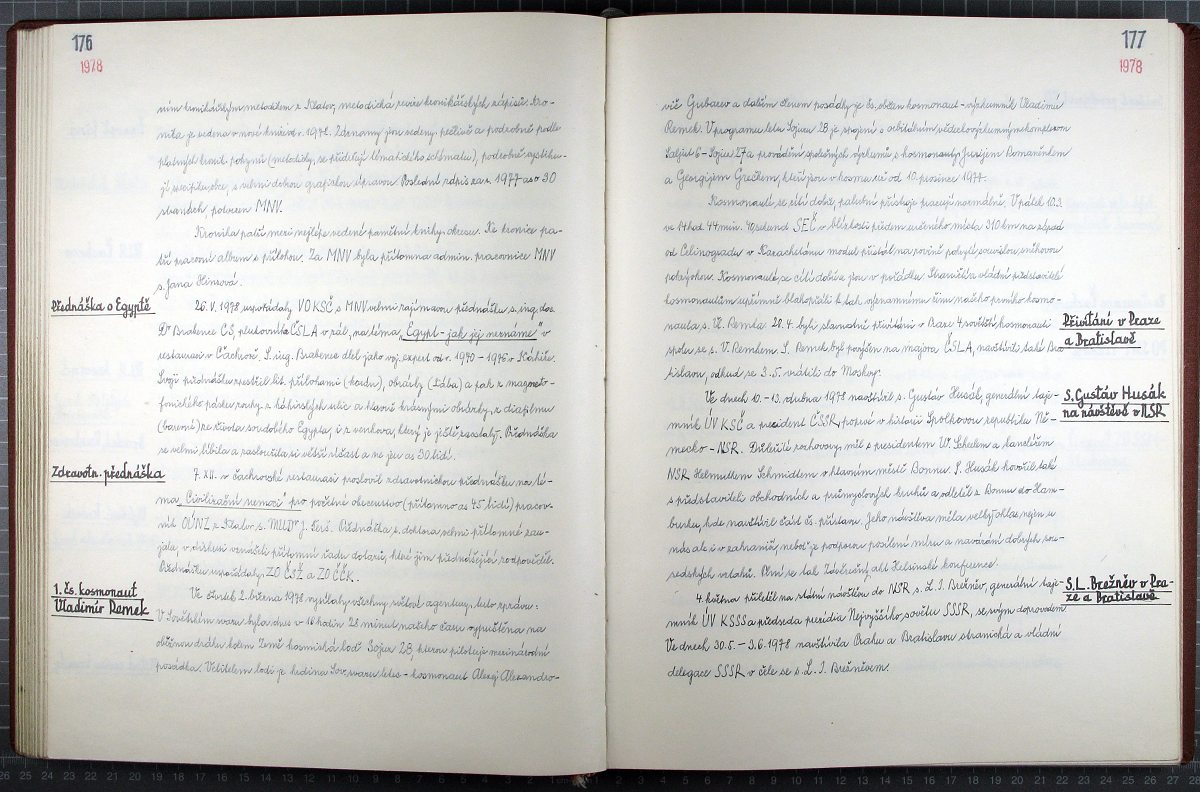 176
1978
ním kronikářským metodikem z Klatov, metodická revize kronikářských zápisů. Kro-
nika je vedena v nové knize od r. 1972. Záznamy jsou vedeny pečlivě a podrobně podle
platných kronik. pokynů (metodiky, se přidržují tématického schématu), podrobně vystihu-
jí specifiku obce, s velmi dobrou grafickou úpravou. Poslední zápis za r. 1977 as o 30
stranách, potvrzen MNV.
Kronika patří mezi nejlépe vedené pamětní knihy okresu. Ke kronice pa-
tří pracovní album s přílohou. Za MNV byla přítomna admin. pracovnice MNV
s. Jana
Přednáška o Egyptě
26. V. 1978 uspořádaly VO KSČ s MNV velmi zajímavou přednášku s. ing. doc.
Dr Brabenec CS, plukovníka ČSLA v zál., na téma „Egypt - jak jej neznáme" v
restauraci v Čachrově. S. ing. Brabenec dlel jako voj. expert od r. 1970 - 1976 v Káhiře.
Svoji přednášku zpestřil lit. přílohami (koránu), obrázky (Lába) a pak z magneto-
fonického pásku zvuky z káhirských ulic a hlavně krásnými obrázky, z diafilmu
(barevné) ze života soudobého Egypta, i z venkova, který je ještě zaostalý. Přednáška
se velmi líbila a zasloužila si větší účast a ne jen as 30 lidí.
Zdravotn. přednáška
7. XII. v čachrovské restauraci proslovil zdravotnickou přednášku na té-
ma „Civilizační nemoci" pro početné obecenstvo (přítomno as 45 lidí) pracov-
ník OÚNZ z Klatov s. MUDr J. Přednáška s. doktora velmi přítomné zau-
jala, v diskusi vznášeli přítomní řadu dotazů, které jim přednášející zodpověděl.
Přednášku uspořádaly ZO ČSŽ a ZO ČČK.
1. čs. kosmonaut
Vladimír Remek
Ve čtvrtek 2. března 1978 vysílaly všechny světové agentury, tuto zprávu:
V Sovětském svazu byla dnes v 16 hodin 28 minut našeho času vypuštěna na
oběžnou dráhu kolem Země kosmická loď Sojuz 28, kterou pilotuje mezinárodní
posádka. Velitelem lodi je hrdina Sov. svazu letec - kosmonaut Alexej Alexandro-
177
1978
vič Gubarev a dalším členem posádky je čs. občan kosmonaut - výzkumník Vladimír
Remek. V programu letu Sojuzu 28 je spojení s orbitálním vědeckovýzkumným komplexem
Saljut 6 - Sojuz 27 a provádění společných výzkumů s kosmonauty Jurijem Romaněnkem
a Georgijem Grečkem, kteří jsou v kosmu už od 10. prosince 1977.
Kosmonauti se cítí dobře, palubní přístroje pracují normálně. V pátek 10.3.
ve 14 hod. 44 min. 40 sekund SEČ v blízkosti předem určeného místa 310 km na západ
od Celinogradu v Kazachstánu modul přistál na rovině pokryté souvislou sněhovou
pokrývkou. Kosmonauté se cítí dobře a jsou v pořádku. Straničtí a vládní představitelé
kosmonautům upřímně blahopřáli k tak významnému činu našeho prvního kosmo-
nauta s. V. Remka. 28.4. byli slavnostně přivítáni v Praze 4 sovětští kosmonauti
spolu se s. V. Remkem. S. Remek byl povýšen na majora ČSLA, navštívili také Bra-
tislavu, odkud se 3.5. vrátili do Moskvy.
Přivítání v Praze
a Bratislavě
Ve dnech 10. - 13. dubna 1978 navštívil s. Gustáv Husák, generální taje-
mník ÚV KSČ a president ČSSR, poprvé v historii Spolkovou republiku Ně-
mecko - NSR. Důležité rozhovory měl s presidentem W. Scheelem a kancléřem
NSR Helmuthem Schmidtem v hlavním městě Bonnu. S. Husák hovořil také
s představiteli obchodních a průmyslových kruhů a odletěl z Bonnu do Ham-
burku, kde navštívil část čs. přístavu. Jeho návštěva měla velký ohlas nejen u
nás ale i v zahraničí, neboť je podporou posílení míru a navázání dobrých sou-
sedských vztahů. Plní se tak Závěrečný akt Helsinské konference.
S. Gustáv Husák
na návštěvě v NSR
4. května přiletěl na státní návštěvu do NSR s. L. I. Brežněv, generální taje-
mník ÚV KSSS a předseda prezidia Nejvyššího sovětu SSSR, se svým doprovodem.
Ve dnech 30.5. - 3.6.1978 navštívila Prahu a Bratislavu stranická a vládní
delegace SSSR v čele se s. L. I. Brežněvem.
S. L. Brežněv v Pra-
ze a Bratislavě